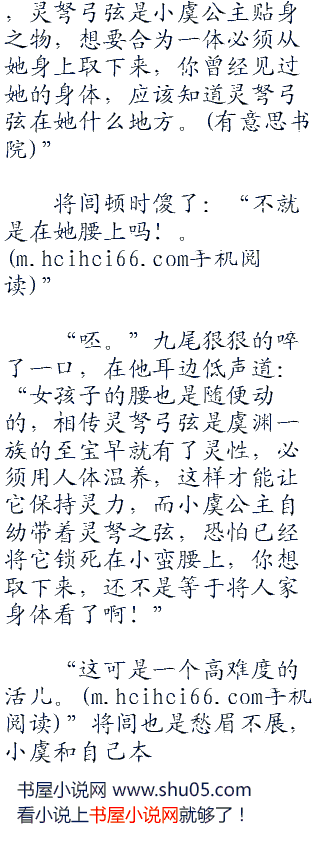 ，灵弩弓弦是小虞公主贴身
之物，想要合为一体必须从
她身上取下来，你曾经见过
她的身体，应该知道灵弩弓
弦在她什么地方。(有意思书
院)”
将闾顿时傻了：“不就
是在她腰上吗！。
(m.hcihci66.com手机阅
读)”
“呸。”九尾狠狠的啐
了一口，在他耳边低声道：
“女孩子的腰也是随便动
的，相传灵弩弓弦是虞渊一
族的至宝早就有了灵性，必
须用人体温养，这样才能让
它保持灵力，而小虞公主自
幼带着灵弩之弦，恐怕已经
将它锁死在小蛮腰上，你想
取下来，还不是等于将人家
身体看了啊！”
“这可是一个高难度的
活儿。(m.hcihci66.com手机
阅读)”将闾也是愁眉不展，
小虞和自己本
书屋小说网 www.shu05.com
看小说上书屋小说网就够了！